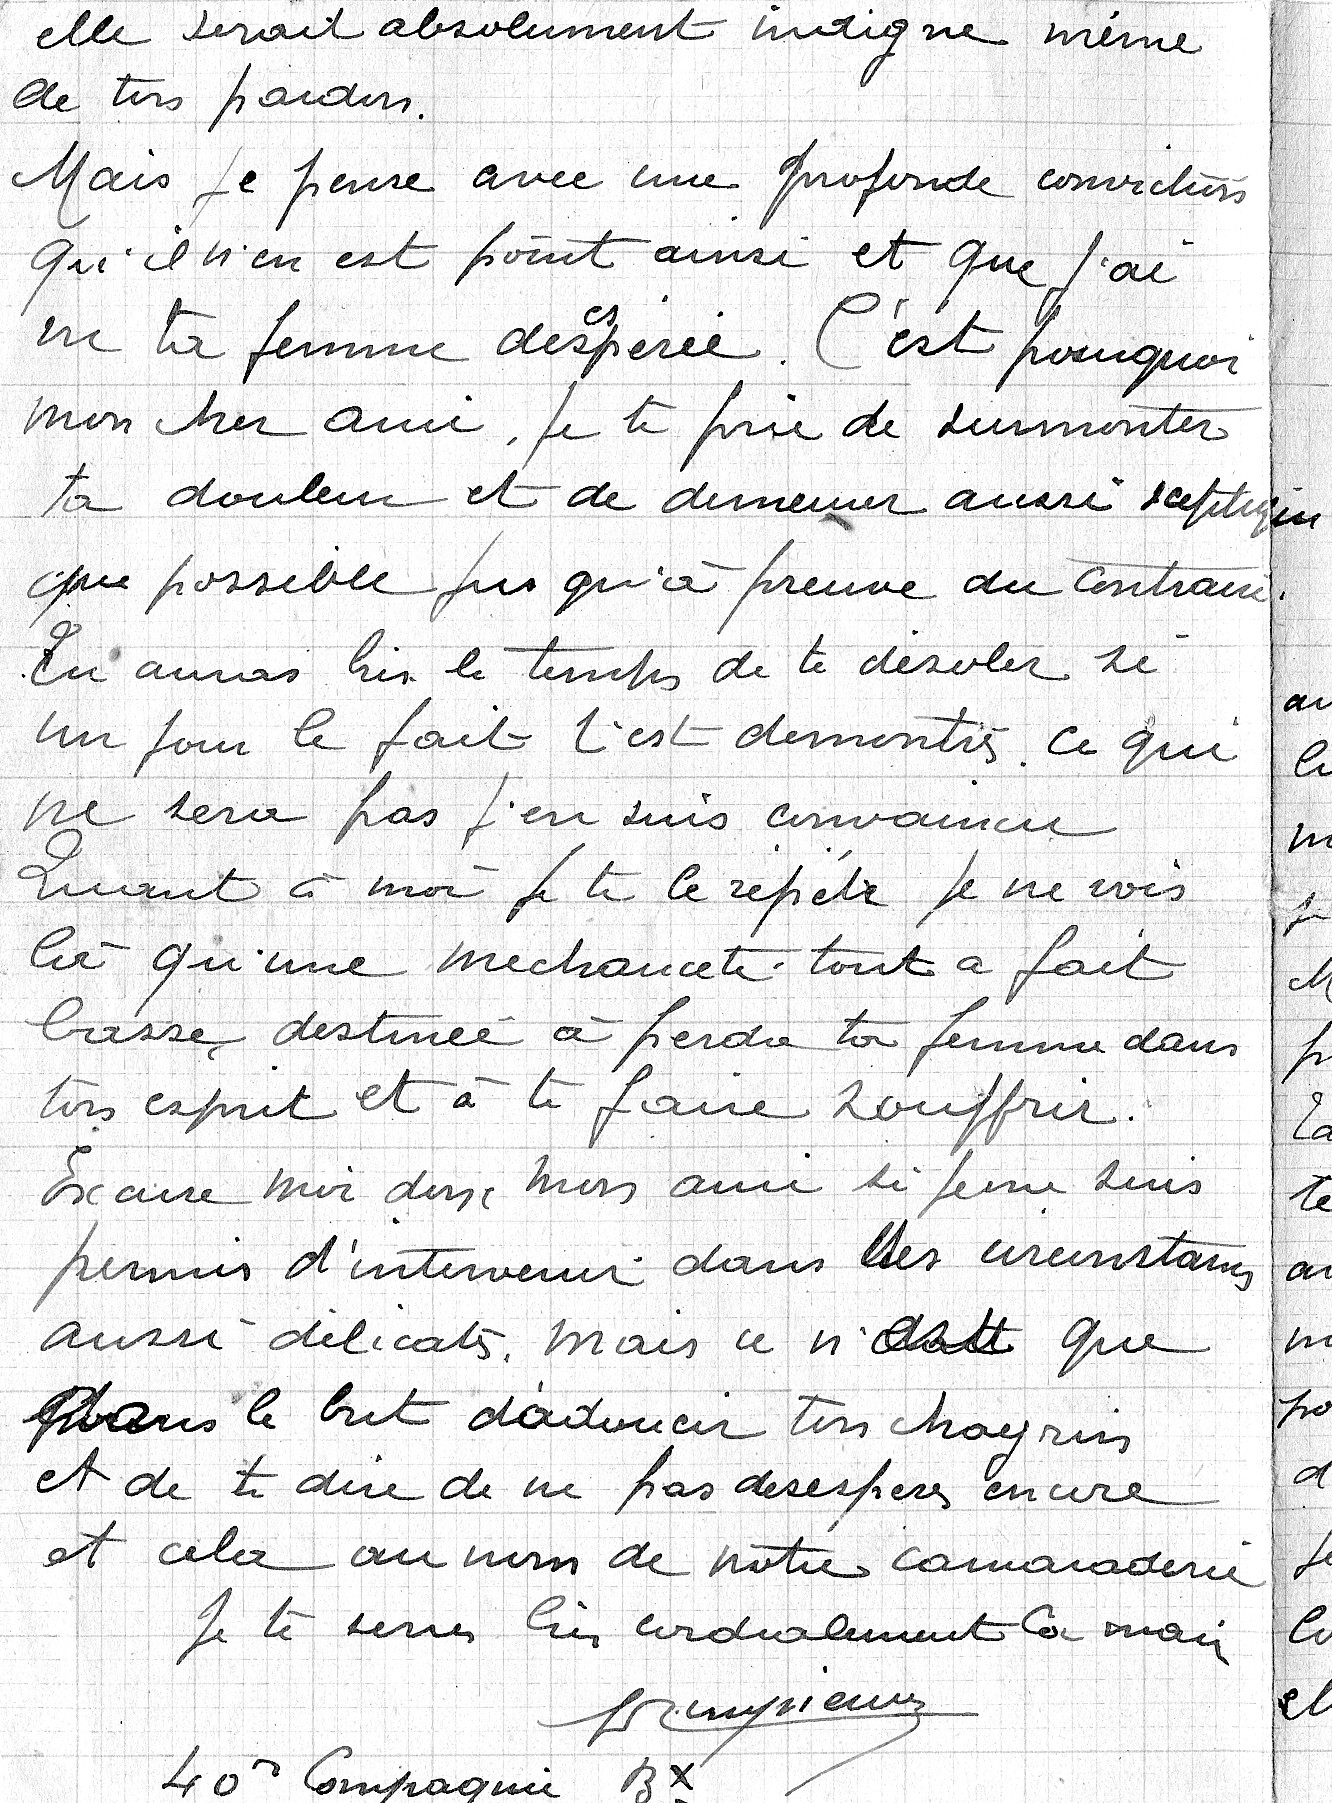 elle serait absolument indigne même
de ton pardon.
Mais je pense avec une profonde conviction
qu'il n'en est point ainsi et que j'ai
vu ta femme désespérée. C'est pourquoi
mon cher ami, je te prie de surmonter
ta douleur et de demeurer aussi sceptique
que possible jusqu'à preuve du contraire.
Tu auras bien le temps de te désoler si
un jour le fait t'est demontré. Ce qui
ne sera pas j'en suis convaincu
Quant à moi je te le répète je ne vois
là qu'une mechanceté tout a fait
basse, destinée à perdre ta femme dans
ton esprit et à te faire souffrir.
Excuse moi donc mon ami si je me suis
permis d'intervenir dans des circonstances
aussi délicates. Mais ce n'est que
dans le but d'adoucir ton chagrin
et de te dire de ne pas desesperer encore
et cela au nom de notre camaraderie
Je te serre bien cordialement la main
40e Compagnie Bx